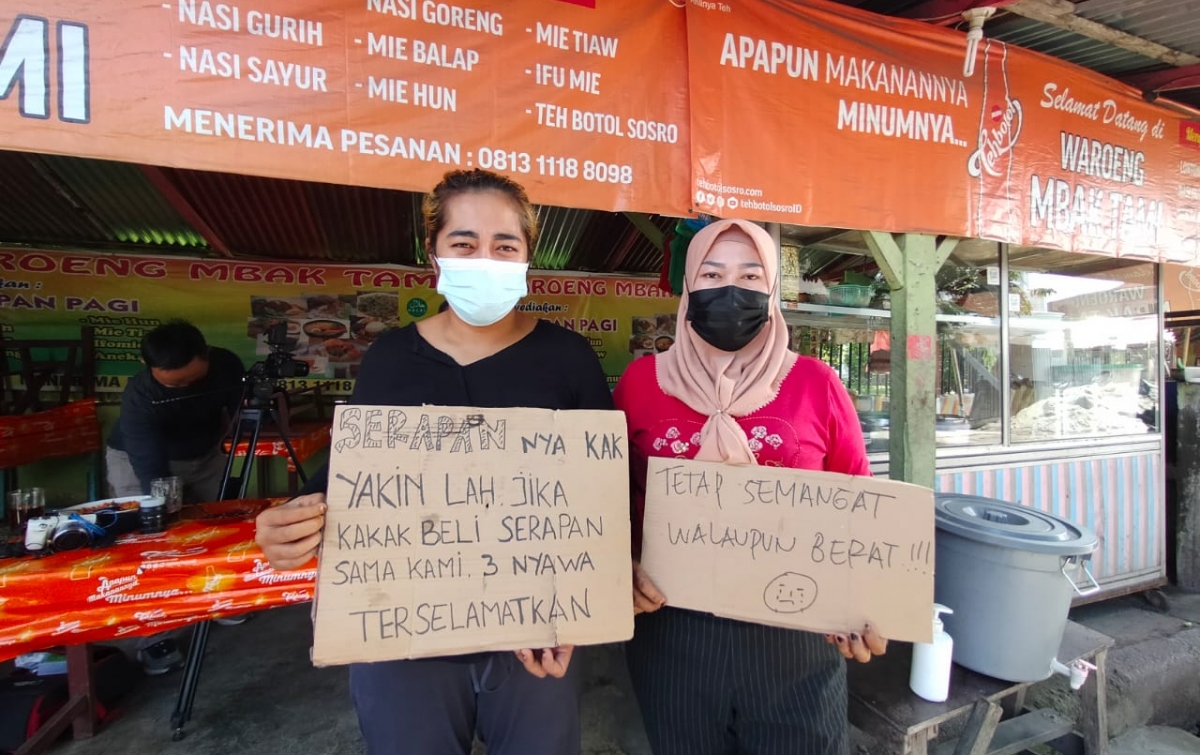 MI
- NASI GURIH
- NASI SAYUR
NASI GORENG
- MIE BALAP
- MIE HUN
- MIE TIAW
- IFU MIE
- TEH BOTOL SOSRO
MENERIMA PESANAN : 0813 1118 8098
APAPUN MAKANANNYA
MINUMNYA...
Tehbotol
tehbotolsosro.com
tehbotolsosroID
Selamat Datang di
WAROENG
MBAK TAMI
WAROENG
ROENG MBAK TAM
ROENG MBAK
APAN PAGI
Mie Hun
yediakan :
PAN PAGI
0813 1118
SERAPAN NYA KAK
YAKIN LAH. JIKA
KAKAK BELI SERAPAN
SAMA KAMI. 3 NYAWA
TERSELAMATKAN
TETAP SEMANGAT
WALAUPUN BERAT!!!
Apapun
Makanannya
Minumnya...